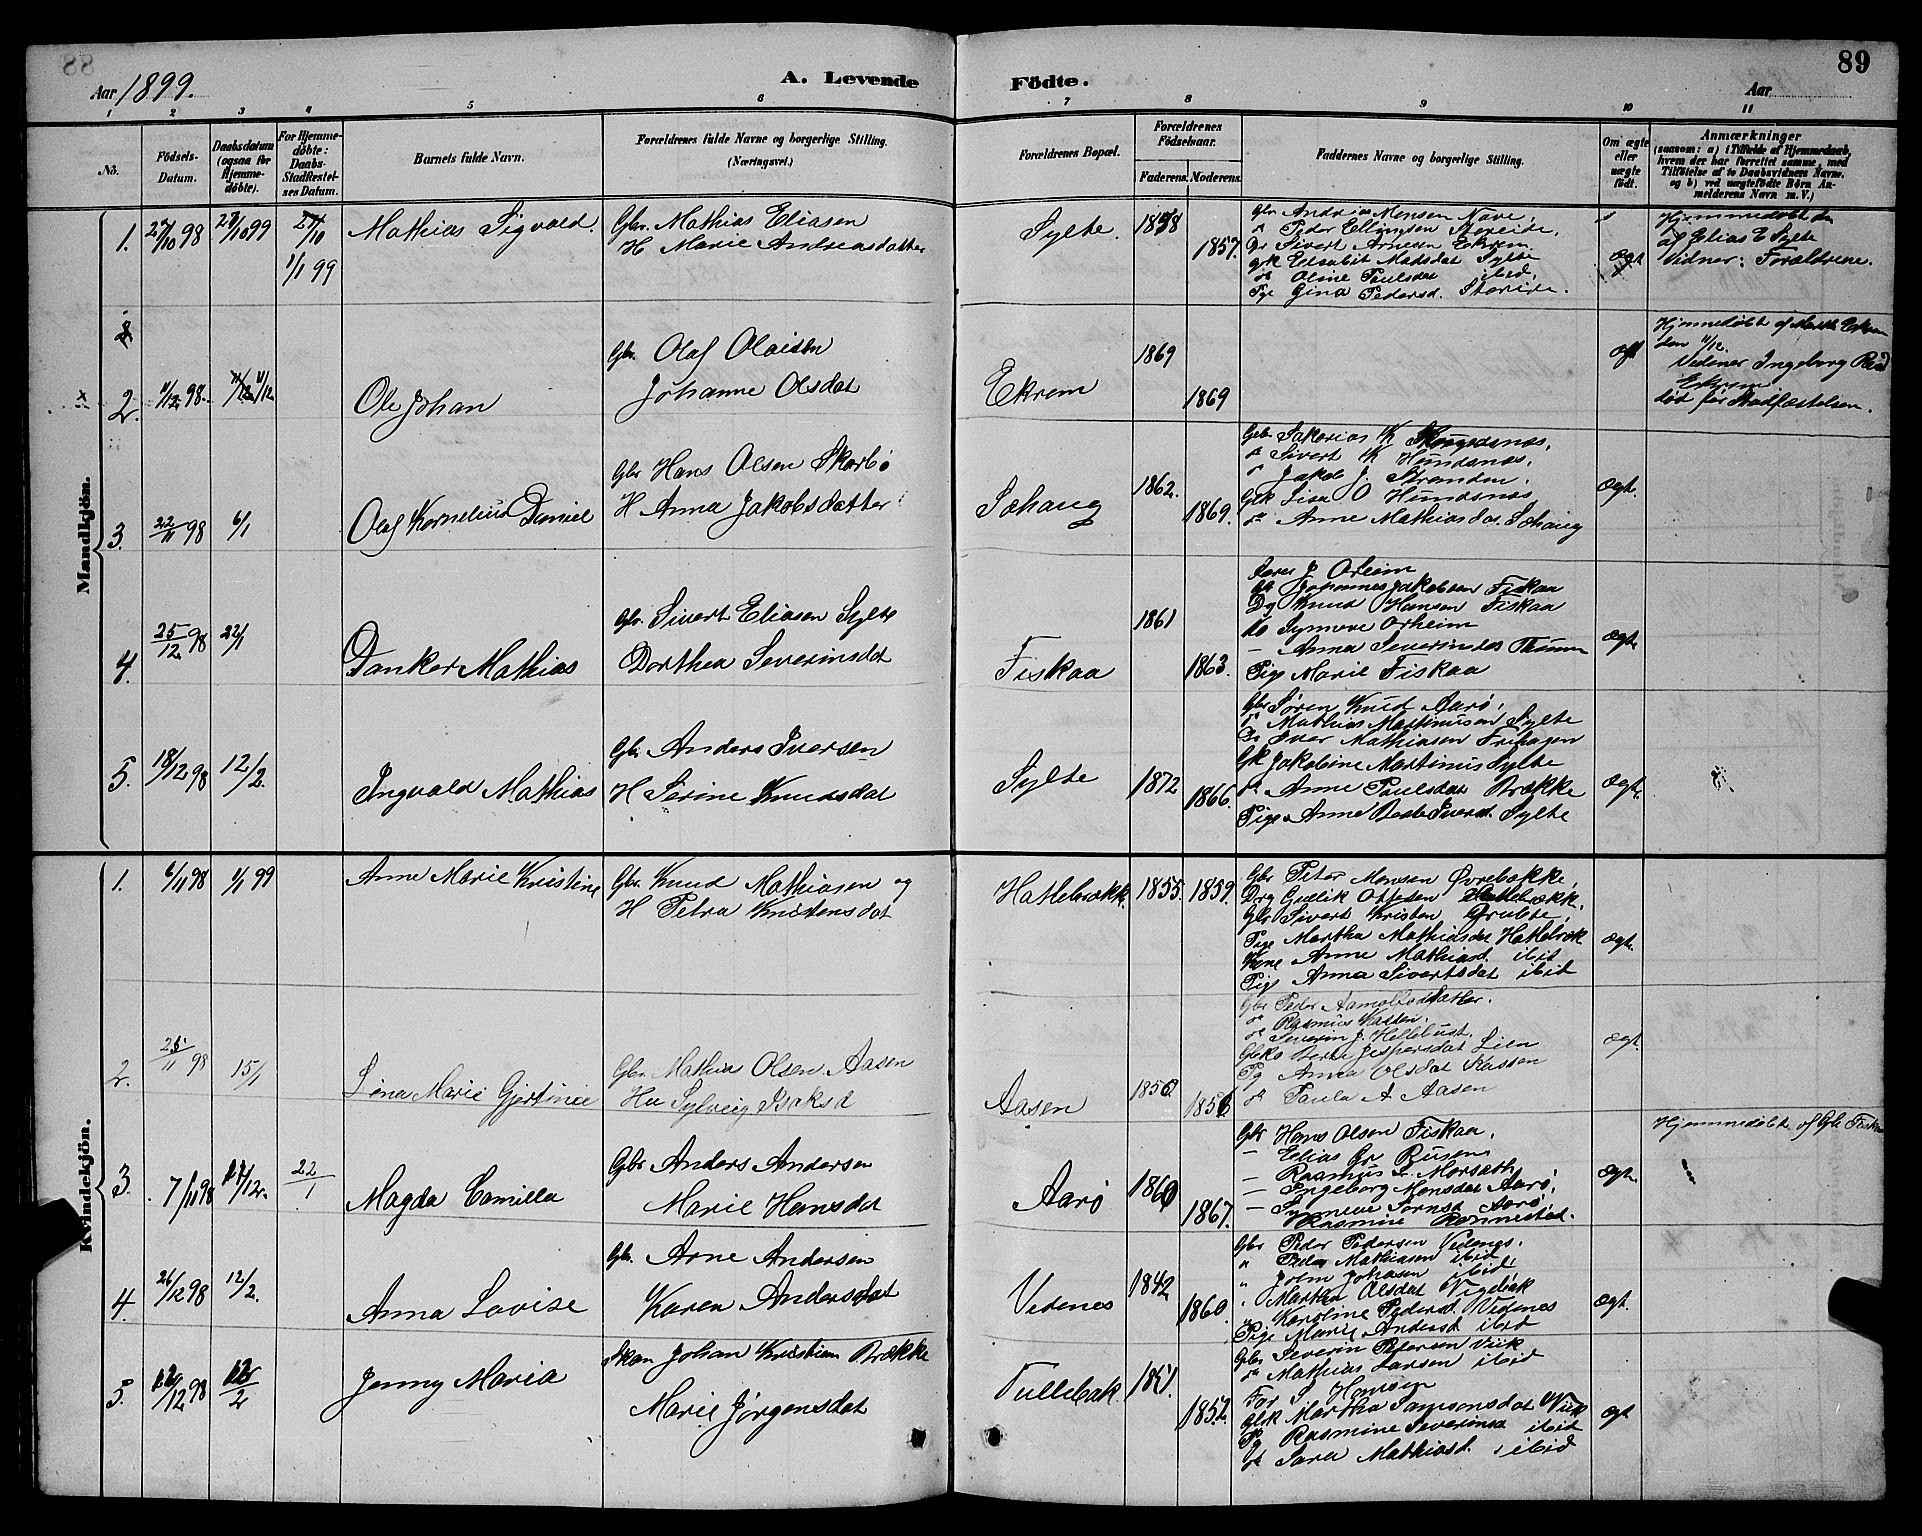 88
89
Aar 1899.
A. Levende
Födte.
Aar
1
2
3
4
5
6
7
8
9
10
11
No.
Födsels-
Datum.
Daabsdatum
(ogsaa for
Hjemme-
döbte).
For Hjemme-
döbte:
Daabs-
Stadfæstel-
ses Datum.
Barnets fulde Navn.
Forældrenes fulde Navne og borgerlige Stilling.
(Næringsvei.)
Forældrenes Bopæl.
Forældrenes
Födselsaar.
Faderens.
Moderens.
Faddernes Navne og borgerlige Stilling.
Om ægte
eller
uægte
födt.
Anmærkninger
(saasom: a) i Tilfælde af Hjemmedaab,
hvem der har forrettet samme, med
Tilföielse af to Daabsvidners Navne,
og b) ved uægtefödte Börn An-
melderens Navn m. V.)
Mandkjön.
1.
27/10 98
27/10 99
27/10
1/1 99
Mathias Sigvald.
Gbr. Mathias Eliassen
H Marie Andreasdatter
Sylte.
1858
1857.
Gbr Andreas Monsen Nave,
" Peder Ellingsen Storeide,
Dr Sivert Arnesen Ekrem.
Grk Elisabet Madsdat Sylte
" Oline Paulsdat ibid.
Pge Gina Pedersd. Storeide.
ægt
Hjemmedøbt den
af Elias E Sylte
Vidner: Forældrene.
2.
11/12 98.
11/12
Ole Johan
Gbr. Olaf Olaisen
Johanne Olsdat
Ekrem
1869
1869
ægt
Hjemmedøbt af Ekrem
den 11/12.
Vidner Ingeborg
Ekrem
død før Stadfæstelsen.
3.
22/11 98
6/1
Olaf Kornelius Daniel
Gbr Hans Olsen Skorbø
H Anna Jakobsdatter
Søhaug
1862.
1869.
Gbr Sakarias K
" Sivert K Hundsnæs,
" Jakob J. Stranden,
Gbk Lisa O Hundsnæs
" Anne Mathiasdat Søhaug
Ægt.
4.
25/12 98
22/1
Danker Mathias
Gbr. Sivert Eliasen Sylte
Dorthea Severinsdat
Fiskaa
1861
1863.
J Orheim
Gbr Johannes Jakobsen Fiskaa
Dg Knud Hansen Fiskaa
Ko Synnove Orheim
— Anna Severinsdat
Pige Marie Fiskaa
Ægt.
5.
18/12 98
12/2.
Ingvald Mathias
Gbr Anders Iversen
H Serine Knudsdat
Sylte
1872
1866.
Gbr Søren Knud Aarø,
" Mathias Martinusen Sylte
Dr Iver Mathiasen Frihagen
Gk Jakobine Martinus Sylte
" Anne Paulsdat Brække
Pige Anne Iversd. Sylte
Ægt.
Kvindekjön.
1.
6/11 98
1/1 99
Anne Marie Kristine
Gbr. Knud Mathiasen og
H Petra Knutensdat
Hatlebrækk.
1855.
1859.
Gbr Peter Monsen Øvrebække,
Drg Gullik Ottesen Hatlebrækk.
Gbr Sivert Kristen
Pige Martha Mathiasdat Hatlebræk
Kone Anne Mathiasd. ibid
Pige Anna Sivertsdat ibid
Ægt.
2.
25/11 98
15/1
Lina Marie Gjertine
Gbr Mathias Olsen Aasen
Hu Sylveig Isaksd
Aasen
1850.
1856
Gbr Peder
" Rasmus
" Severin J. Hellebust.
Gbko Berte Jespersdat Lien
Pg Anna Olsdat Kassen
" Paula A Aasen
Ægt.
3.
7/11 98
22/1
Magda Camilla
Gbr Anders Andersen
Marie Hansdat
Aarø
1860
1867.
Gbr Hans Olsen Fiskaa,
— Elias
— Rasmus L. Morsæth
— Ingeborg Monsdat Aarø,
— Synneve Aarø,
Rasmine Rønnestad.
Ægt.
Hjemmedøbt af Fiskaa
4.
26/12 98
12/2.
Anna Lovise
Gbr. Arne Andersen
Karen Andersdat
Videnes
1842
1860
Gbr Peder Pedersen Videnes,
" Peder Mathiasen ibid,
" John Johasen ibid,
" Martha Olsdat
" Karoline Pedersd. Videnes
Pige Marie Andersd ibid
Ægt.
5.
/12 98
12/2
Jenny Maria
Skom Johan Kristian Brække
Marie Jørgensdat
Tullebak
1851.
1852.
Gbr Severin Petersen Viik
" Mathias Larsen ibid
For S Hansen
Gbk Martha Samsonsdat Viik
Pg Rasmine Severinsd ibid
" Sara Mathiasd. ibid
ægt